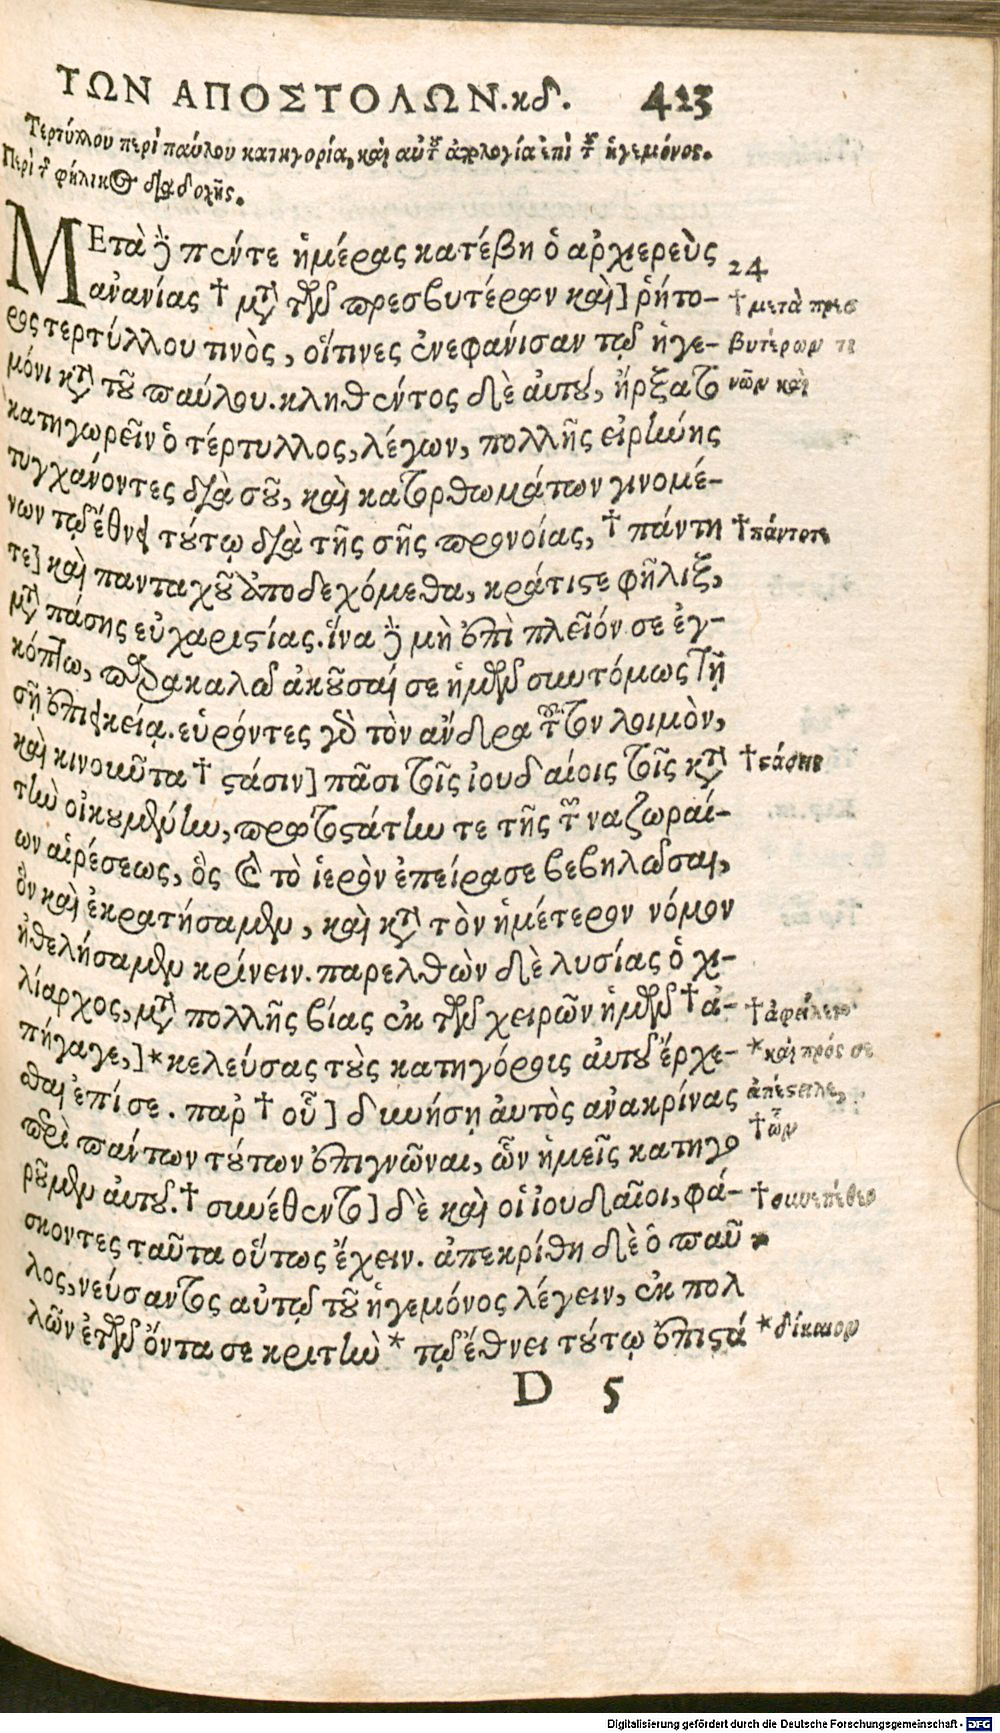 ΤΩΝ ΑΠΟΣΤΟΛΩΝ.κδ. 423
Τερτύλλου περὶ παύλου κατηγορία, καὶ αὐτοῦ ἀπολογία ἐπὶ τοῦ ἡγεμόνος.
Περὶ τοῦ φήλικος διαδοχῆς.
ΜΕτὰ δὲ πέντε ἡμέρας κατέβη ὁ ἀρχιερεὺς
24
ἀνανίας † μετὰ τῶν πρεσβυτέρων καὶ] ῥήτο-
† μετὰ πρεσ
ρος τερτύλλου τινὸς, οἵτινες ἐνεφάνισαν τῷ ἡγε-
βυτέρων τι
μόνι κατὰ τοῦ παύλου. κληθέντος δὲ αὐτοῦ, ἤρξατο
νῶν καὶ
κατηγωρεῖν ὁ τέρτυλλος, λέγων, πολλῆς εἰρήνης
τυγχάνοντες διὰ σοῦ, καὶ κατορθωμάτων γινομέ-
νων τῷ ἔθνει τούτῳ διὰ τῆς σῆς προνοίας, † πάντη
† πάντοτε
τε] καὶ πανταχοῦ ἀποδεχόμεθα, κράτιστε φῆλιξ,
μετὰ πάσης εὐχαριστίας. ἵνα δὲ μὴ ἐπὶ πλεῖόν σε ἐγ-
κόπτω, παρακαλῶ ἀκοῦσαί σε ἡμῶν συντόμως τῇ
σῇ ἐπιεικείᾳ. εὑρόντες γὰρ τὸν ἄνδρα τοῦτον λοιμὸν,
καὶ κινοῦντα † στάσιν] πᾶσι τοῖς ἰουδαίοις τοῖς κατὰ
† στάσεις
τὴν οἰκουμένην, πρωτοστάτην τε τῆς τῶν ναζωραί-
ων αἱρέσεως, ὃς καὶ τὸ ἱερὸν ἐπείρασε βεβηλῶσαι,
ὃν καὶ ἐκρατήσαμεν, καὶ κατὰ τὸν ἡμέτερον νόμον
ἠθελήσαμεν κρίνειν. παρελθὼν δὲ λυσίας ὁ χι-
λίαρχος, μετὰ πολλῆς βίας ἐκ τῶν χειρῶν ἡμῶν † ἀ-
† ἀφείλετο
πήγαγε,] * κελεύσας τοὺς κατηγόρους αὐτοῦ ἔρχε-
* καὶ πρός σε
σθαι ἐπί σε. παρ † οὗ] δυνήσῃ αὐτὸς ἀνακρίνας
ἀπέστειλε,
περὶ πάντων τούτων ἐπιγνῶναι, ὧν ἡμεῖς κατηγο
† ὧν
ροῦμεν αὐτοῦ. † συνέθεντο] δὲ καὶ οἱ ἰουδαῖοι, φά-
† συνεπέθεν
σκοντες ταῦτα οὕτως ἔχειν. ἀπεκρίθη δὲ ὁ παῦ
λος, νεύσαντος αὐτῷ τοῦ ἡγεμόνος λέγειν, ἐκ πολ
λῶν ἐτῶν ὄντα σε κριτὴν * τῷ ἔθνει τούτῳ ἐπιστά
* δίκαιον
D 5
Digitalisierung gefördert durch die Deutsche Forschungsgemeinschaft - DFG